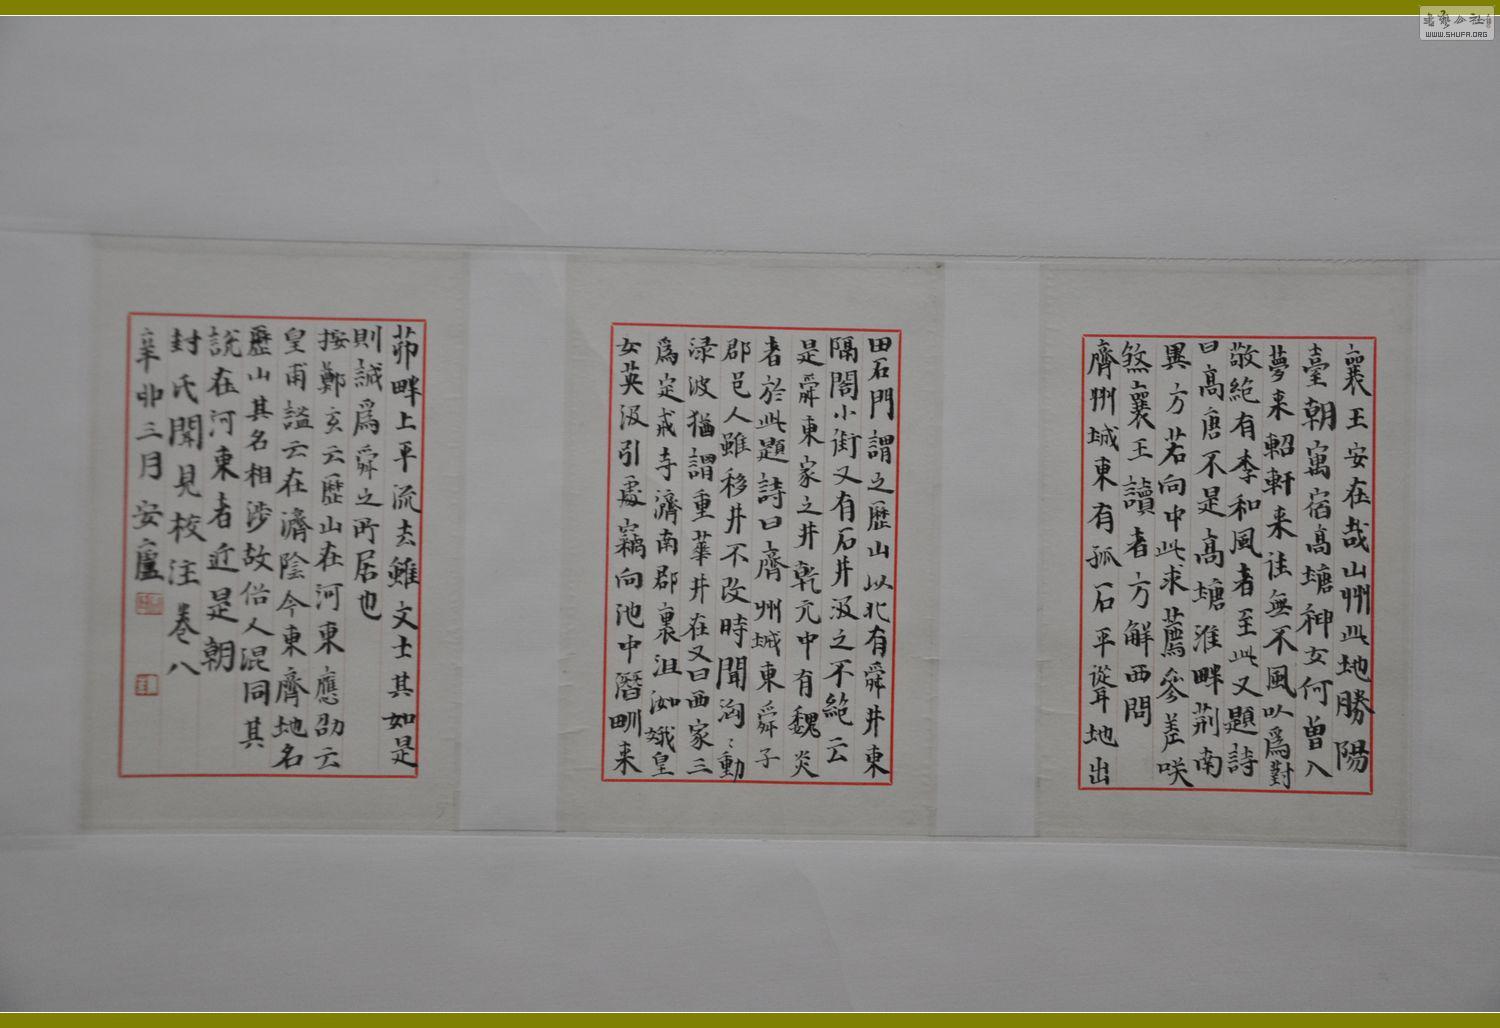 襄王安在哉山州此地勝陽
臺朝寓宿高塘神女何曾入
夢来軺軒来往無不風以為對
敬絶有李和風者至此又題詩
曰高唐不是高塘淮畔荆南
異方若向中此求薦參差咲
煞襄王讀者方解西問
齊州城東有孤石平聳地出
田石門謂之歷山以北有舜井東
隔閤小街又有石井汲之不絶云
是舜東家之井乾元中有魏炎
者於此題詩曰齊州城東舜子
郡邑人雖移井不改時聞洶〻動
渌波猶謂重華井在又曰西家三
為定戒寺濟南郡裏沮洳娥皇
女英汲引處竊向池中潛畎来
茆畔上平流去雖文士其如是
則誠為舜之所居也
按鄭玄云歷山在河東應劭云
皇甫謐云在濟陰今東齊地名
歷山其名相涉故俗人混同其
説在河東者近是朝
封氏聞見校注卷八
辛卯三月安廬
书艺公社
WWW.SHUFA.ORG